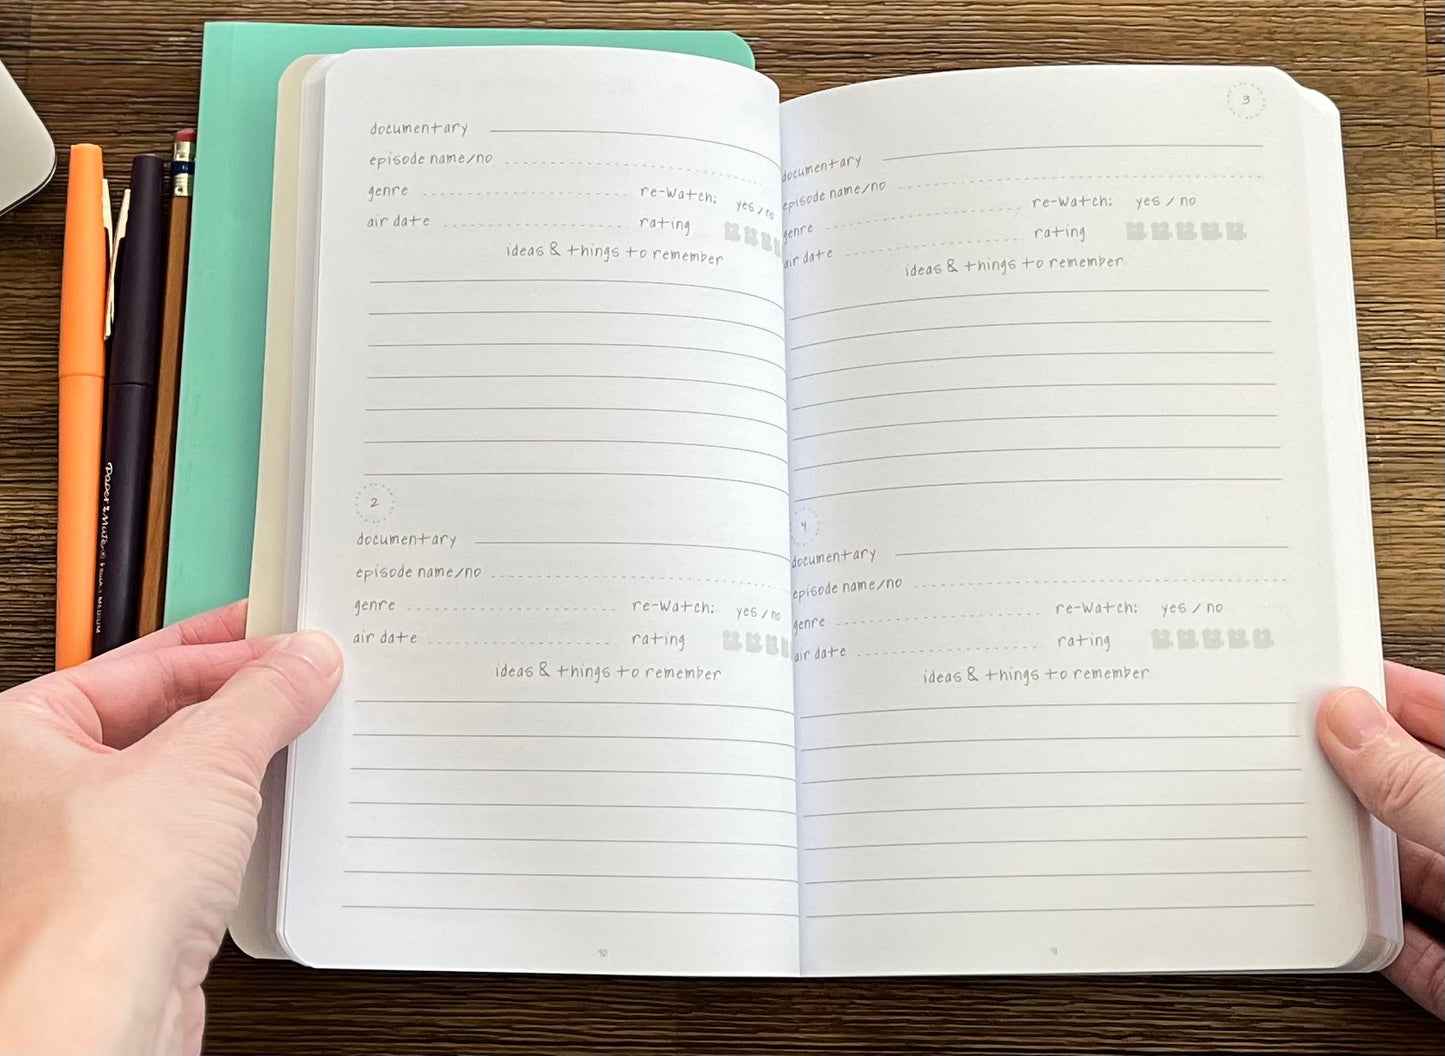 documentary
episode name/no
genre re-watch: yes / no
air date rating
ideas & things to remember
2
documentary
episode name/no
genre re-watch: yes / no
air date rating
ideas & things to remember
40
3
documentary
episode name/no
genre re-watch: yes / no
air date rating
ideas & things to remember
4
documentary
episode name/no
genre re-watch: yes / no
air date rating
ideas & things to remember
41
Paper Mate